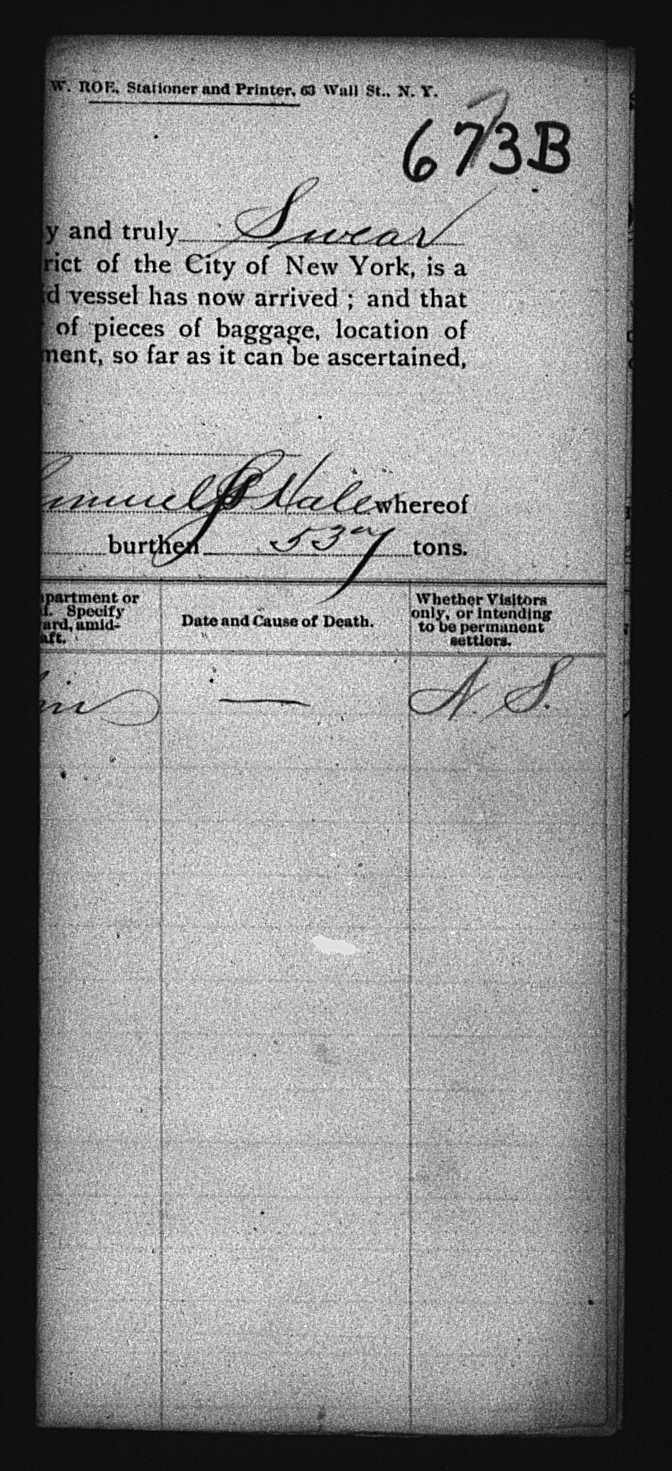 W. ROE, Stationer and Printer, 63 Wall St., N. Y.
673B
y and truly Swear
rict of the City of New York, is a
d vessel has now arrived ; and that
of pieces of baggage, location of
ment, so far as it can be ascertained,
Hale whereof
burthen 537 tons.
partment or
f. Specify
ard, amid-
aft.
Date and Cause of Death.
Whether Visitors
only, or intending
to be permanent
settlers.
in — N. S.